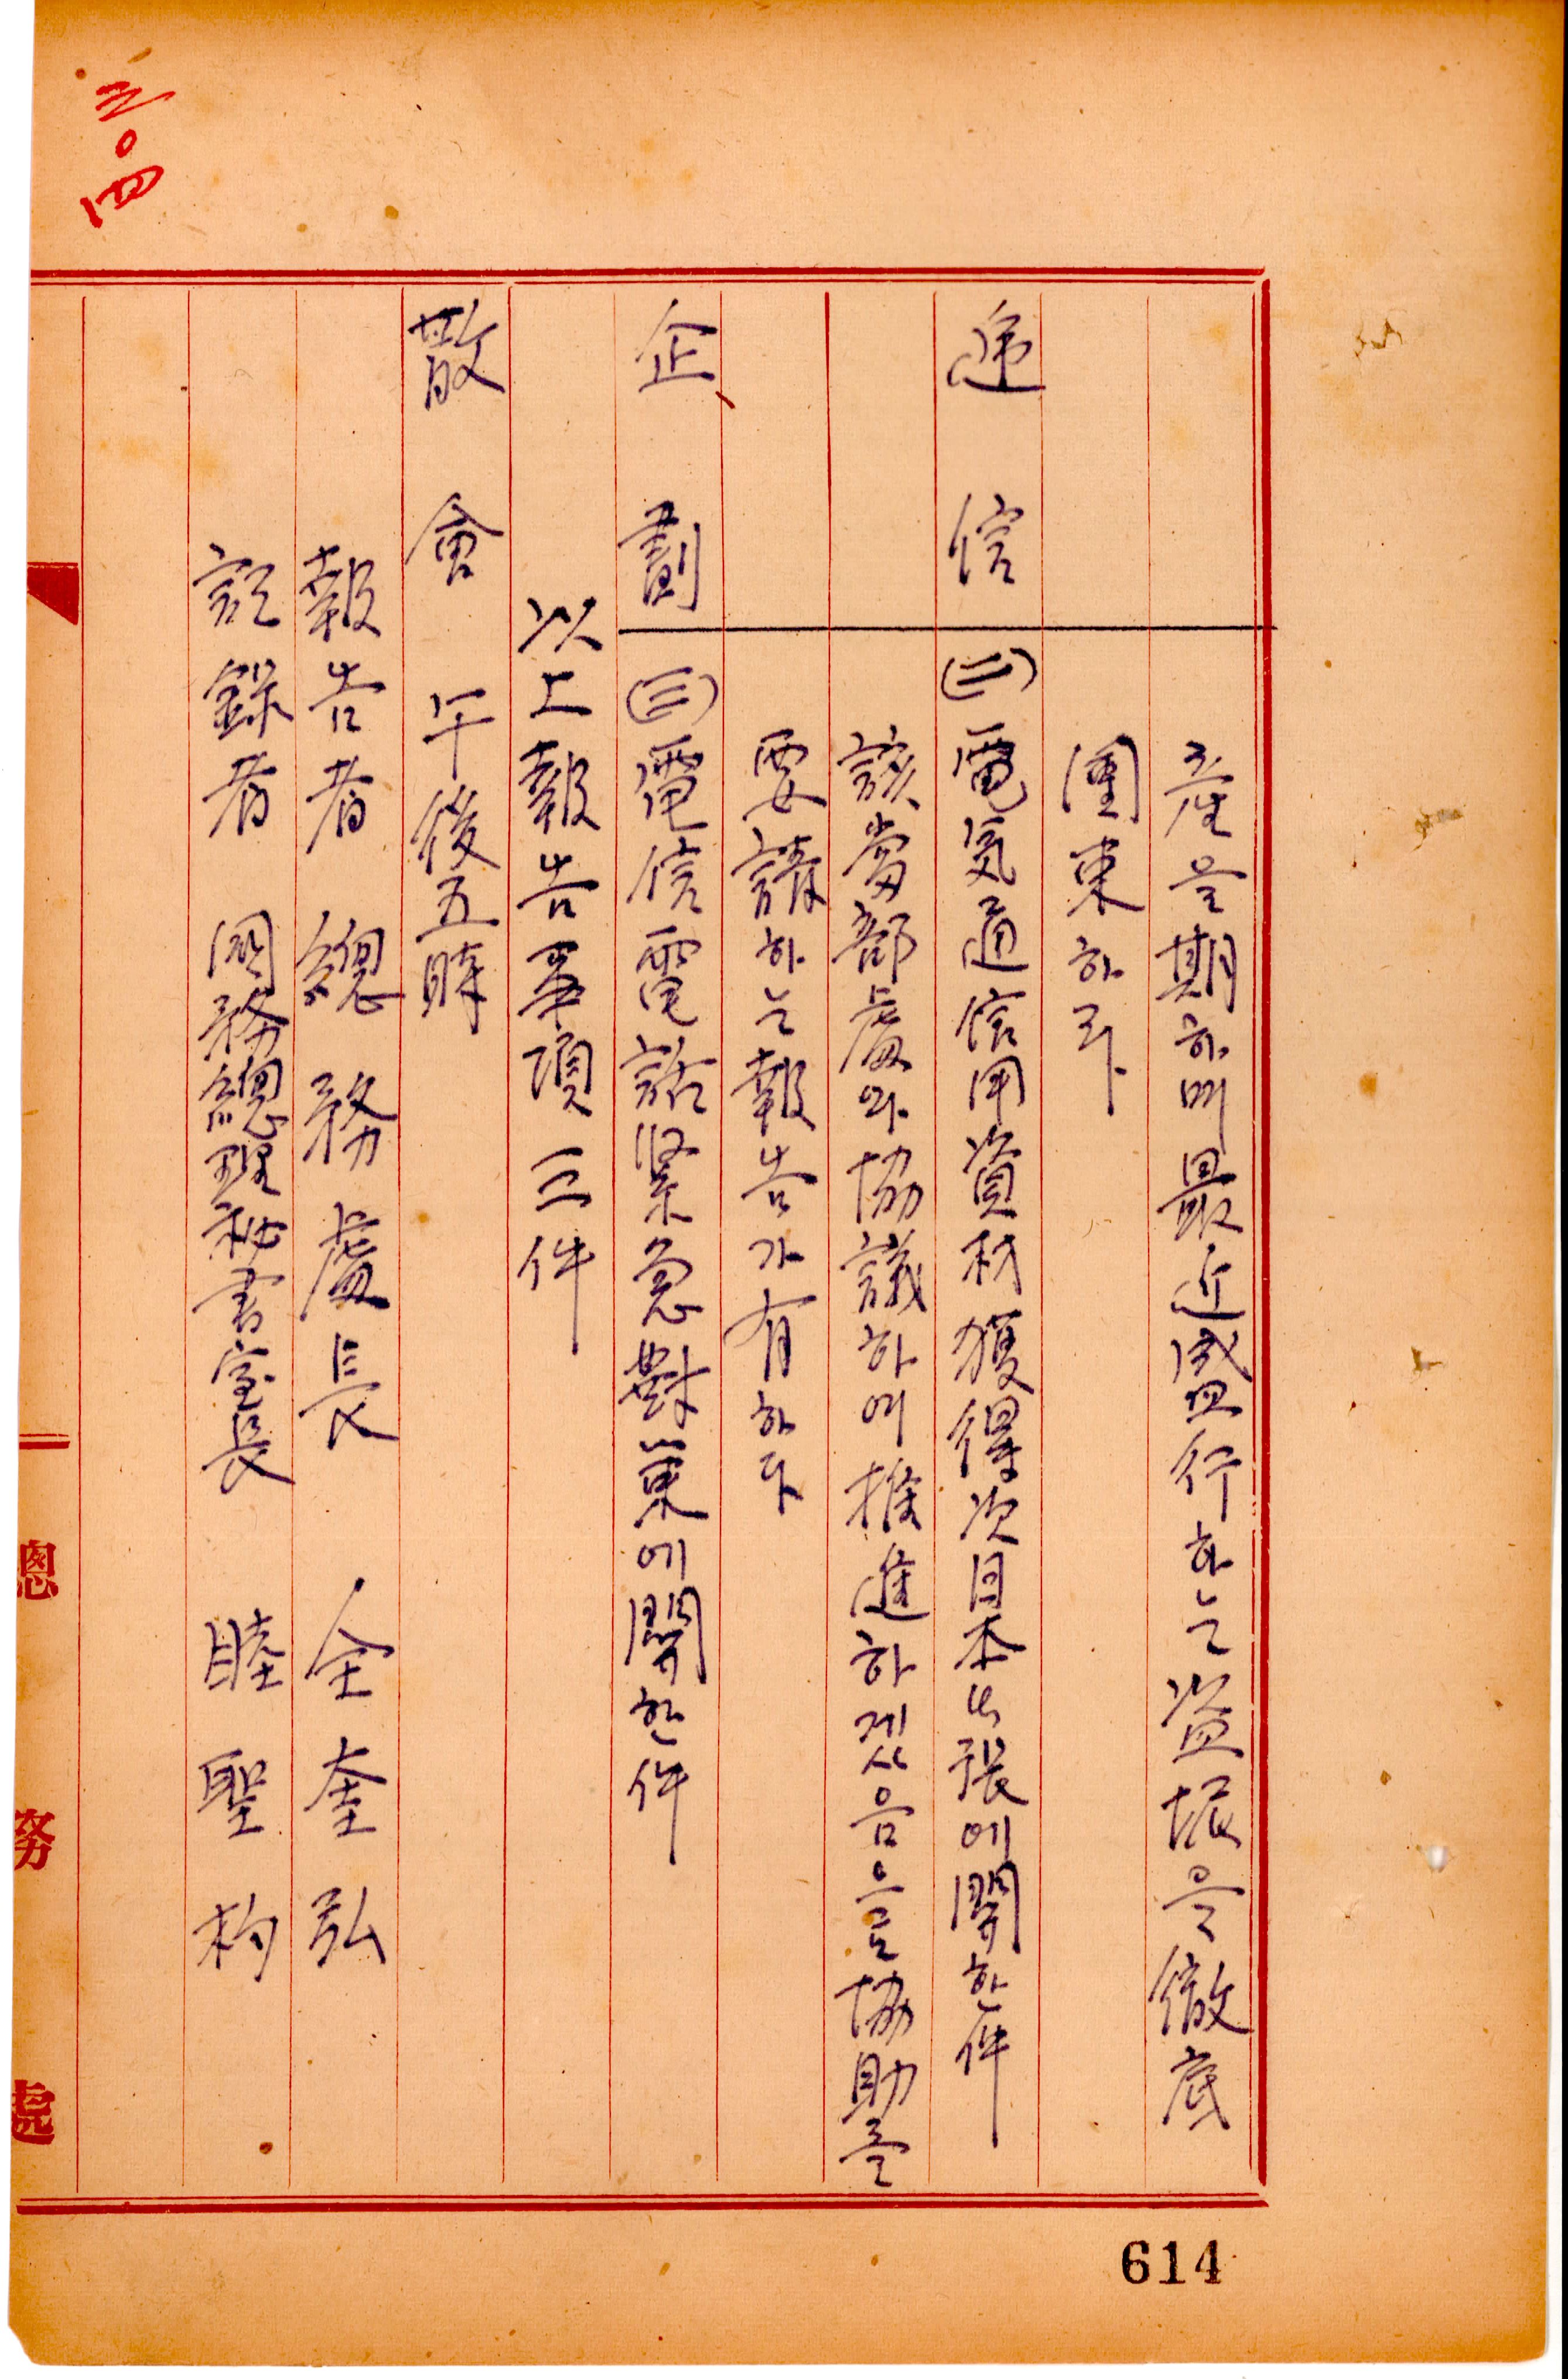 産을期하며最近盛行하는盗掘을徹底
團束하라
逓信 (二)電気通信用資材獲得次日本出張에関한件
該當部處와協議하여推進하겠음으로協助를
要請하는報告가有하다
企劃 (三)電信電話緊急對策에関한件
以上報告事項三件
散會 午後五時
報告者 總務處長 全奎弘
記錄者 國務總理秘書室長 睦聖杓
三〇四
總務處
614